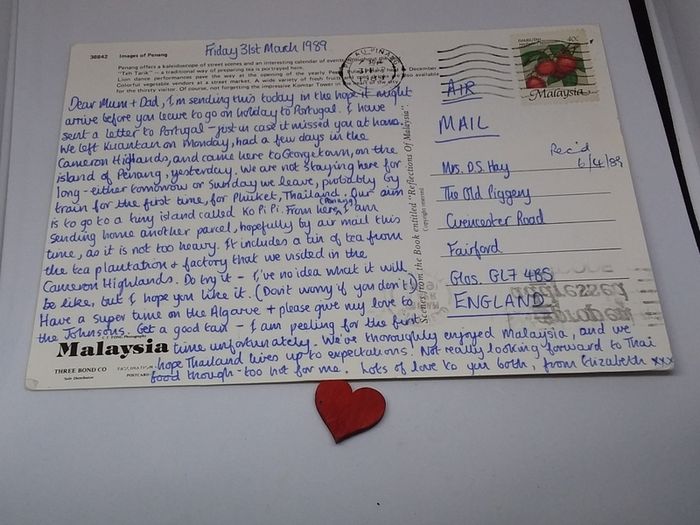 38842 Images of Penang
Friday 31st March 1989
Penang offers a kaleidoscope of street scenes and an interesting calendar of events
"Teh Tarik" – a traditional way of preparing tea is portrayed here.
Lion dance performances pave the way at the opening of the yearly December
Colourful vegetable vendors at a street market. A wide variety of fresh available
for the thirsty visitor. Of course, not forgetting the impressive Komtar Tower
Dear Mum + Dad, I'm sending this today in the hope it might
arrive before you leave to go on holiday to Portugal. I have
sent a letter to Portugal - just in case it missed you at home.
We left Kuantan on Monday, had a few days in the
Cameron Highlands, and came here to Georgetown, on the
island of Penang, yesterday. We are not staying here for
long - either tomorrow or Sunday we leave, probably by
train for the first time, for Phuket, Thailand. Our aim
is to go to a tiny island called Ko Pi Pi. From here (Penang), I am
sending home another parcel, hopefully by air mail this
time, as it is not too heavy. It includes a tin of tea from
the tea plantation + factory that we visited in the
Cameron Highlands. Do try it - I've no idea what it will
be like, but I hope you like it. (Don't worry if you don't!)
Have a super time on the Algarve + please give my love to
the Johnsons. Get a good tan - I am peeling for the first
time unfortunately. We've thoroughly enjoyed Malaysia, and we
hope Thailand lives up to expectations! Not really looking forward to Thai
food though - too hot for me. Lots of love to you both, from Elizabeth xxx
Malaysia
THREE BOND CO
Sole Distributor
POSTCARD
Scenes from the Book entitled "Reflections Of Malaysia"
Copyright reserved
PULAU PINANG
40c
Malaysia
AIR
MAIL
Rec'd
6/4/89
Mrs. D.S. Hay
The Old Piggery
Cirencester Road
Fairford
Glos. GL7 4BS
ENGLAND